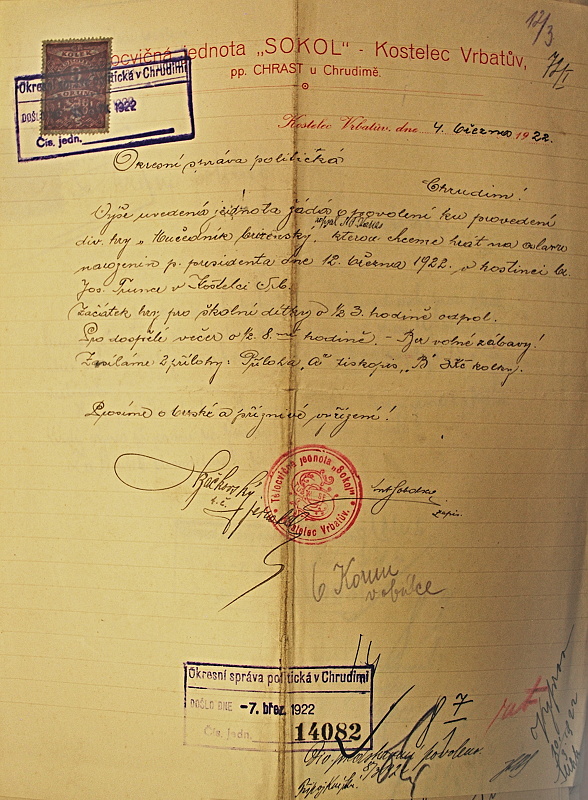 12/3
Tělocvičná jednota „SOKOL" - Kostelec Vrbatův,
pp. CHRAST u Chrudimě.
Okresní správa politická v Chrudimi
DOŠLO 1922
Čís. jedn.
Kostelec Vrbatův, dne 4. března 1922.
Okresní správa politická
Chrudim!
Výše uvedená jednota žádá o povolení ku provedení
div. hry „Mučedník brixenský", kterou chceme hrát na oslavu
narozenin p. presidenta dne 12. března 1922. v hostinci
Jos. v Kostelci Vrb.
Začátek hry pro školní dítky o ½ 3. hodině odpol.
Pro dospělé večer o ½ 8. hodině. - Bez volné zábavy!
Zasíláme 2 přílohy: Příloha „A" tiskopis, „B" 3 Kč kolky.
Prosíme o brzké a příznivé vyřízení!
Tělocvičná jednota „Sokol"
Kostelec Vrbatův.
t. č.
zapis.
6 Korun
v obálce
Okresní správa politická v Chrudimi
DOŠLO DNE -7. břez. 1922
Čís. jedn. 14082
povoleno